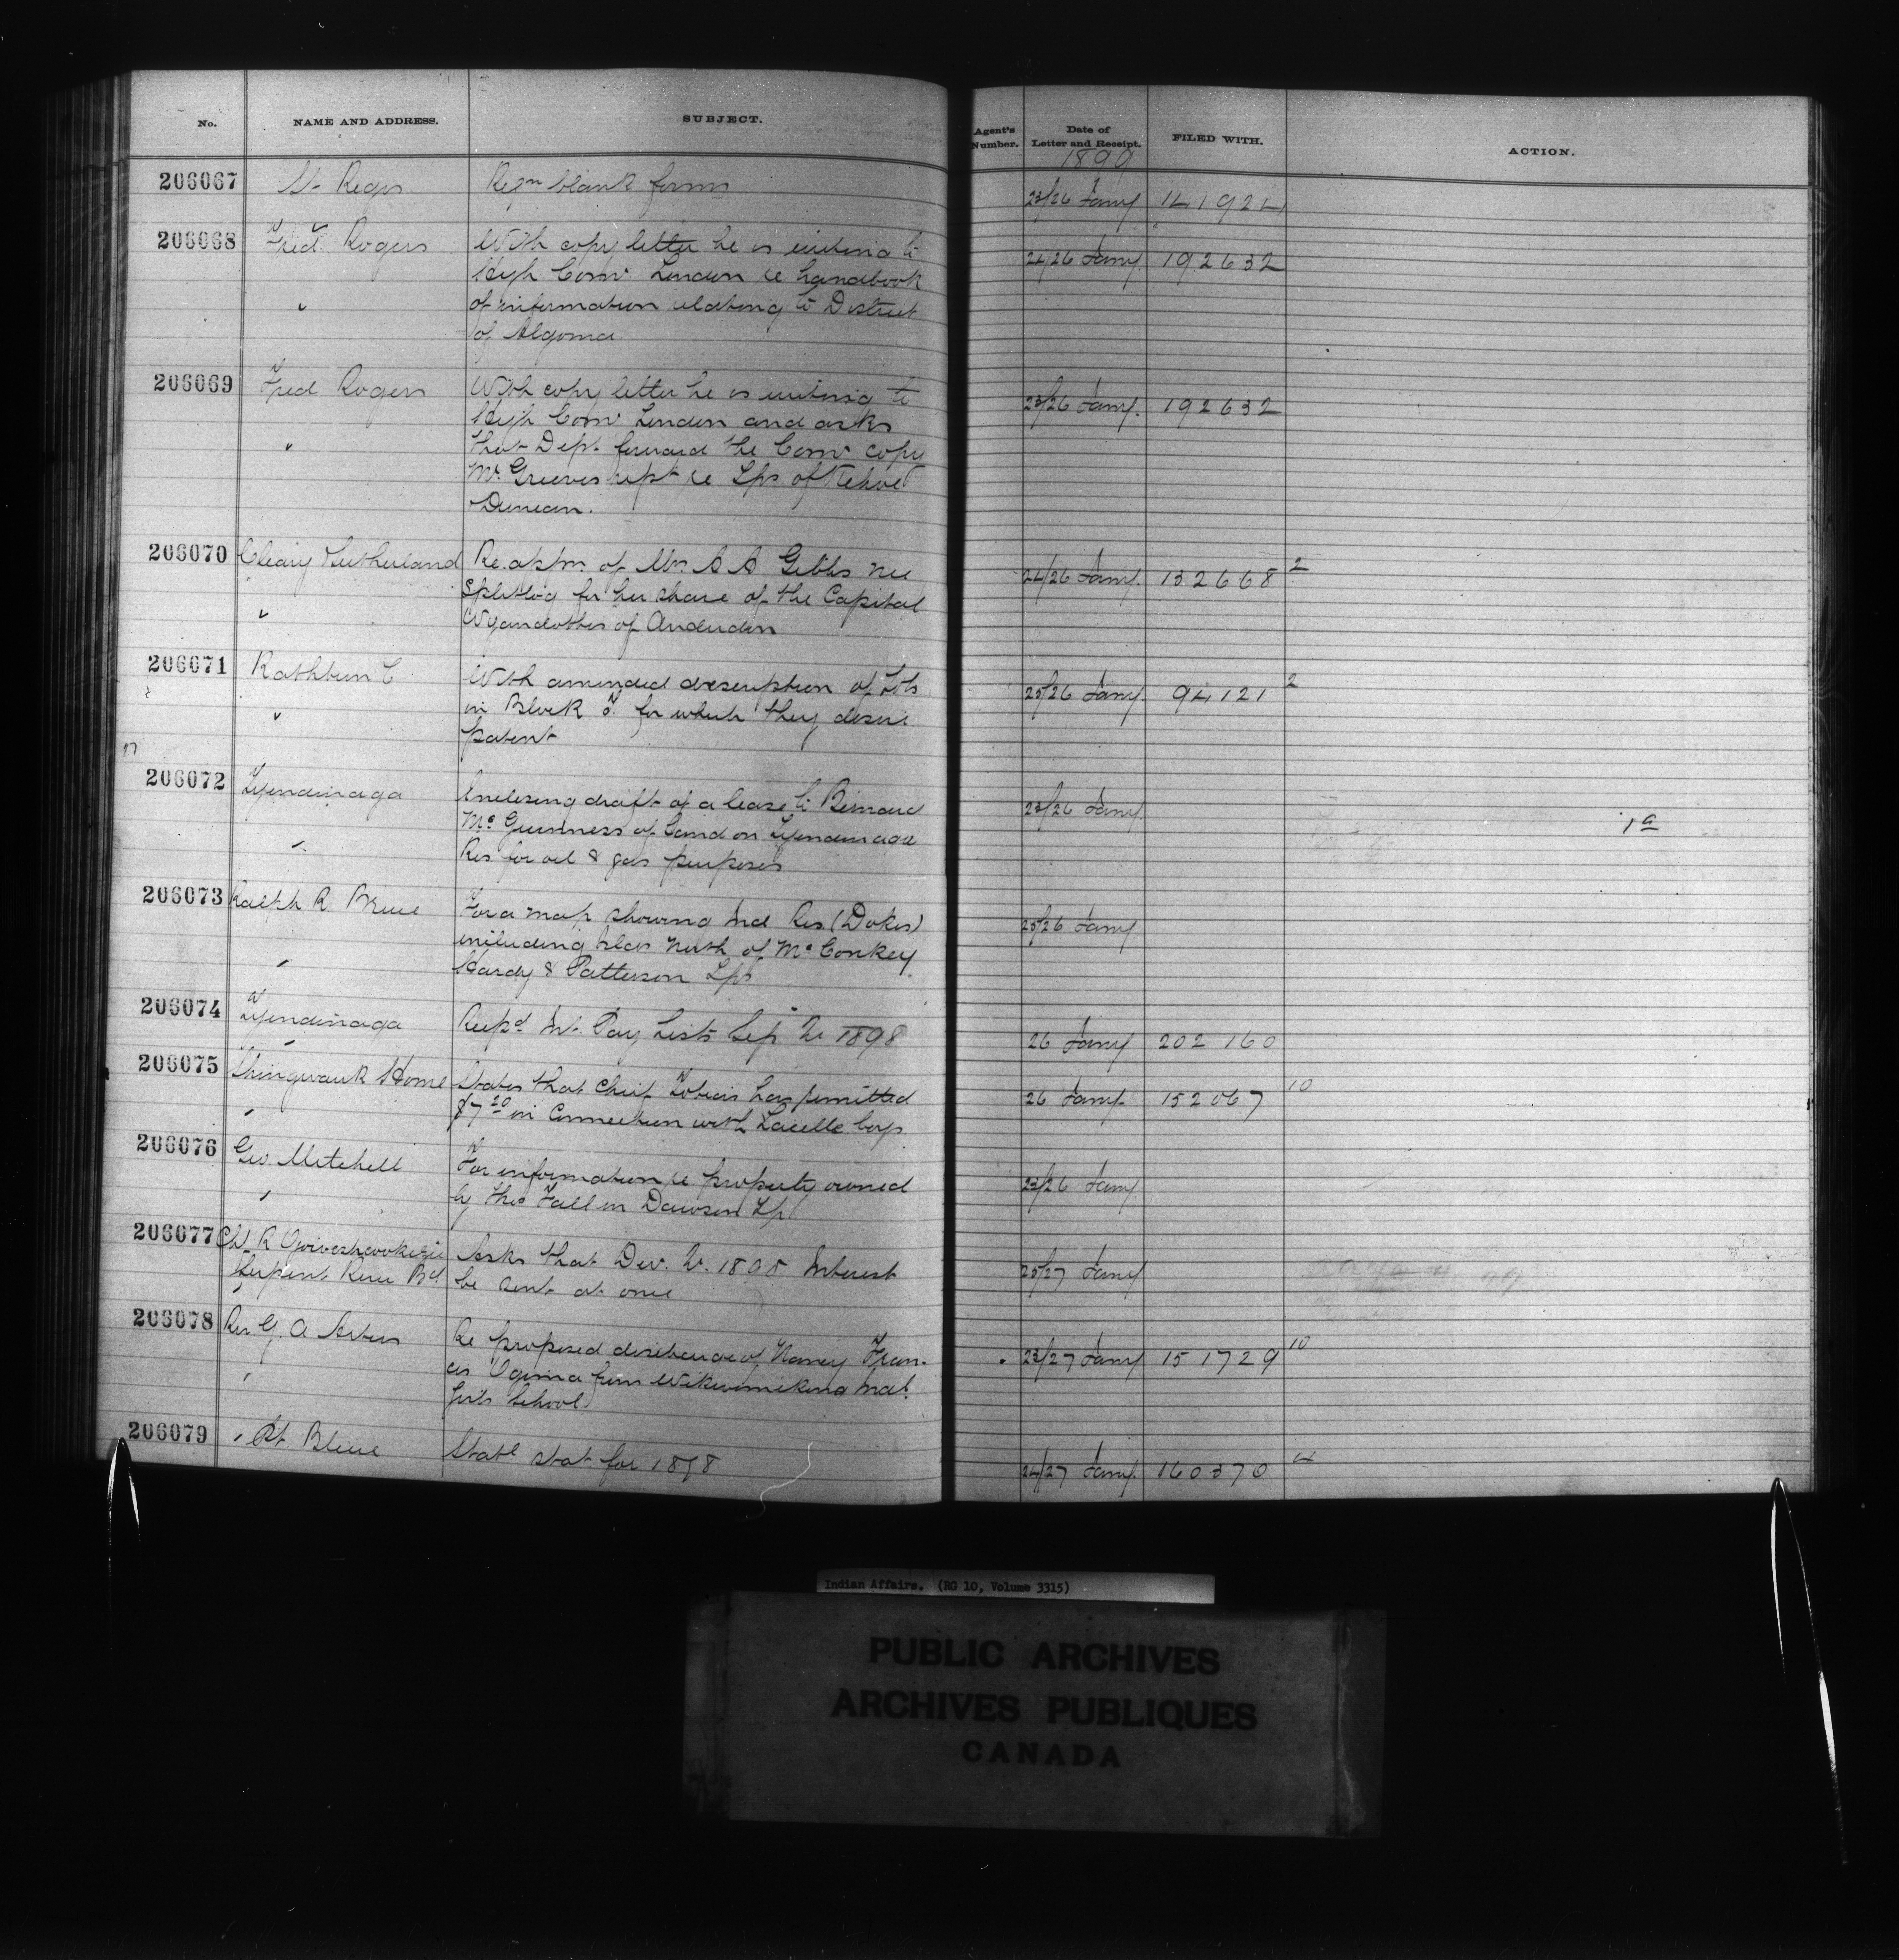 No. NAME AND ADDRESS. SUBJECT. Agent's Number. Date of Letter and Receipt. FILED WITH. ACTION.
1899
206067 St Regis Reqn blank forms 23/26 Jany 141924
206068 Fred Rogers With copy letter he is writing to 24/26 Jany 192632
High Comr London re handbook
of information relating to District
of Algoma
206069 Fred Rogers With copy letter he is writing to 23/26 Jany. 192632
High Comr London and asks
that Dept. forward the Comr copy
Mr. Greeves rept re Tps of Kehoe
Duncan.
206070 Cleary Sutherland Re apln. of Mrs A A Gibbs nee 24/26 Jany. 132668 2
Splitlog for her share of the Capital
Wyandottes of Anderdon
206071 Rathbun C With amended description of Lots 25/26 Jany. 94121 2
in Block F. for which they desire
patent
206072 Tyendinaga Enclosing draft of a lease to Bernard 23/26 Jany
Mc Guinness of land on Tyendinaga 1a
Res for oil & gas purposes
206073 Ralph R. Bruce For a map showing Ind Res (Dokis) 25/26 Jany
including Islds North of McConkey
Hardy & Patterson Tps
206074 Tyendinaga Recpd Int. Pay Lists Sep Qr 1898 26 Jany 202160
206075 Shingwauk Home States that Chief Tobias has remitted 26 Jany 152067 10
$7 20 in connection with Lacelle boys
206076 Geo. Mitchell For information re property owned 23/26 Jany
by Thos Fall in Dawson Tp
206077 Chf. R Asks that Dec. Qr. 1898 Interest 25/27 Jany
Serpent River Bd be sent at once
206078 Rev. G. A Artus Re proposed discharge of Nancy Fran- 23/27 Jany 151729 10
cis Ogima from Wikwemikong Indl.
Girls School
206079 Pt. Bleue Statl stat for 1898 24/27 Jany. 160370 4
Indian Affairs. (RG 10, Volume 3315)
PUBLIC ARCHIVES
ARCHIVES PUBLIQUES
CANADA